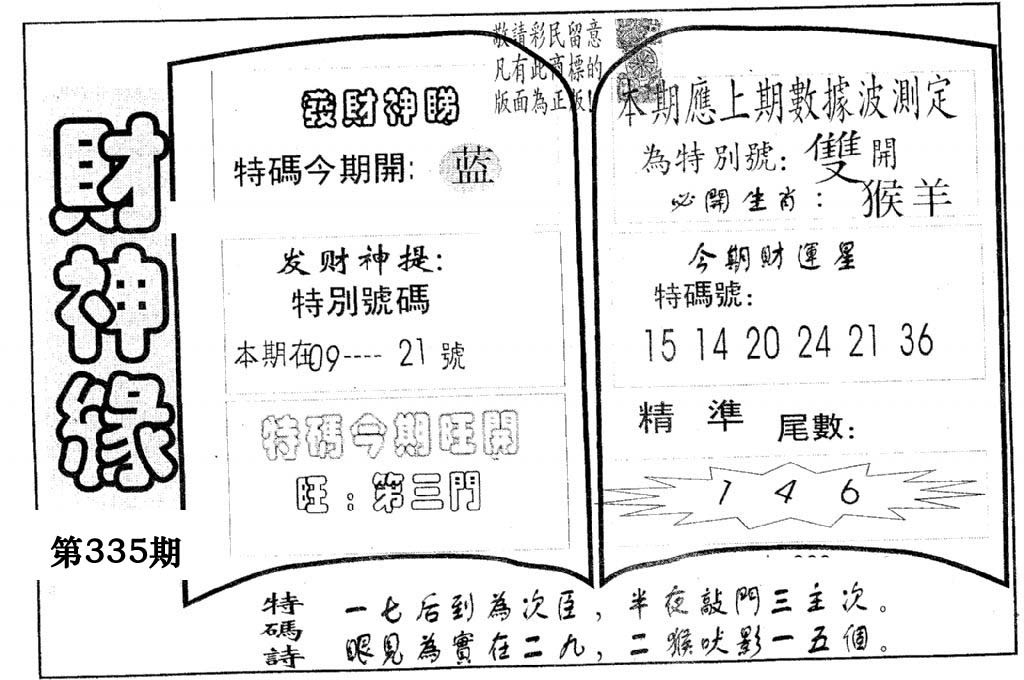 敬請彩民留意
凡有此商標的
版面為正版!
財神緣
第335期
發財神睇
特碼今期開: 蓝
发财神提:
特別號碼
本期在09---- 21 號
特碼今期旺開
旺:第三門
本期應上期數據波測定
為特別號: 雙 開
必開生肖: 猴羊
今期財運星
特碼號:
15 14 20 24 21 36
精 準 尾數:
1 4 6
特碼詩
一七后到為次臣,半夜敲門三主次。
眼見為實在二九,二猴吠影一五個。